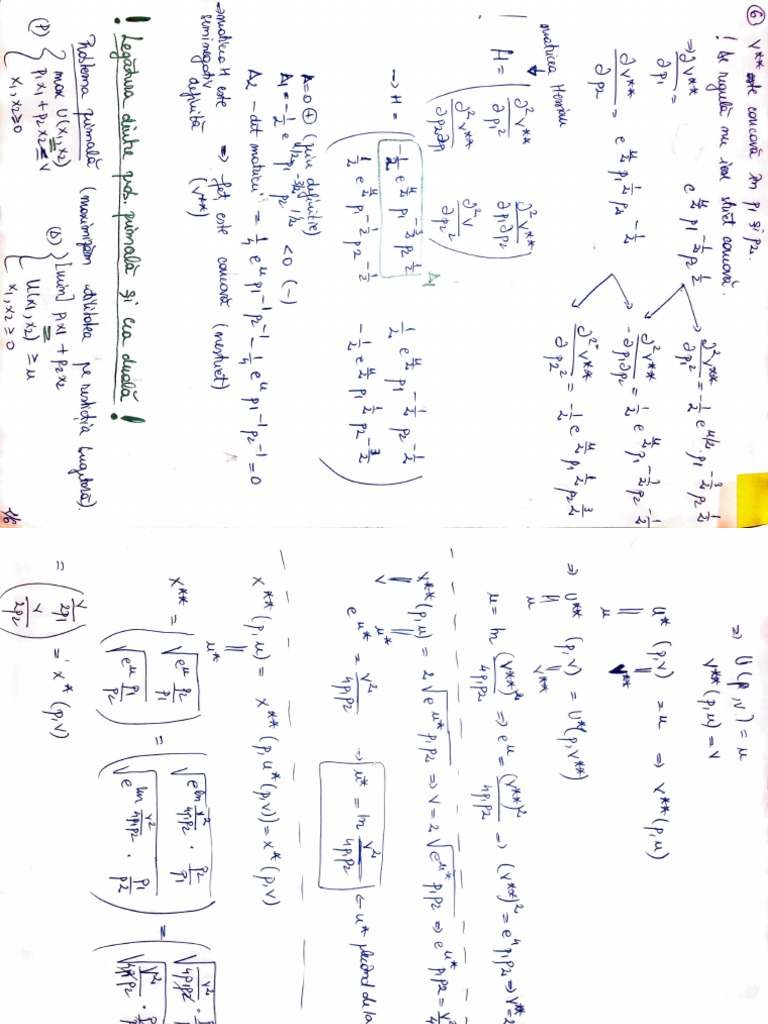 ⑥ V** este concavă în p1 și p2.
! De regulă nu iese strict concavă.
⇒ ∂V**/∂p1 = e^(u/2) p1^(-1/2) p2^(1/2)
∂²V**/∂p1² = -1/2 e^(u/2) · p1^(-3/2) p2^(1/2)
∂²V**/∂p1∂p2 = 1/2 e^(u/2) p1^(-1/2) p2^(-1/2)
∂V**/∂p2 = e^(u/2) p1^(1/2) p2^(-1/2)
∂²V**/∂p2² = -1/2 e^(u/2) p1^(1/2) p2^(-3/2)
matricea Hessian
H = ( ∂²V**/∂p1² ∂²V**/∂p1∂p2
∂²V**/∂p2∂p1 ∂²V/∂p2² )
→ H = ( -1/2 e^(u/2) p1^(-3/2) p2^(1/2) 1/2 e^(u/2) p1^(-1/2) p2^(-1/2)
1/2 e^(u/2) p1^(-1/2) p2^(-1/2) -1/2 e^(u/2) p1^(1/2) p2^(-3/2) )
Δ1
Δ=0 + (prin definiție)
Δ1 = -1/2 e^(u/2) p1^(-3/2) p2^(1/2) < 0 (-)
Δ2 - det matricii = 1/4 e^u p1^-1 p2^-1 - 1/4 e^u p1^-1 p2^-1 = 0
⇒ matricea H este seminegativ definită ⇒ fct este concavă (nestrict)
(V**)
! Legătura dintre pb. primală și cea duală !
Problema primală (maximizăm utilitatea pe restricția bugetară).
(P) { max U(x1,x2)
p1x1 + p2x2 ≤ V
x1, x2 ≥ 0
(D) { [min] p1x1 + p2x2
U(x1,x2) ≥ u
x1, x2 ≥ 0
⇒ U(p,V) = u
V**(p,u) = V
U*(p,V) = u ⇒ V**(p,u)
u V**
⇒ U*(p,V) = U*(p,V**)
u V**
u = ln (V**)²/4p1p2 ⇒ e^u = (V**)²/4p1p2 ⇒ (V**)² = e^u 4p1p2 ⇒ V** = 2
V**(p,u) = 2√(e^(u*) p1p2) ⇒ V = 2√(e^(u*) p1p2) ⇒ e^(u*) p1p2 = V²/4
V u*
e^(u*) = V²/4p1p2 ⇒ u* = ln V²/4p1p2 ← u* plecând de la
x**(p,u) = x**(p,u*(p,V)) = x*(p,V)
u*
x** = ( √(e^u p2/p1)
√(e^u p1/p2) ) = ( √(e^(ln V²/4p1p2) · p2/p1)
√(e^(ln V²/4p1p2) · p1/p2) ) = ( √(V²/4p1p2 ·
√(V²/4p1p2 ·
= ( V/2p1
V/2p2 ) = x*(p,V)